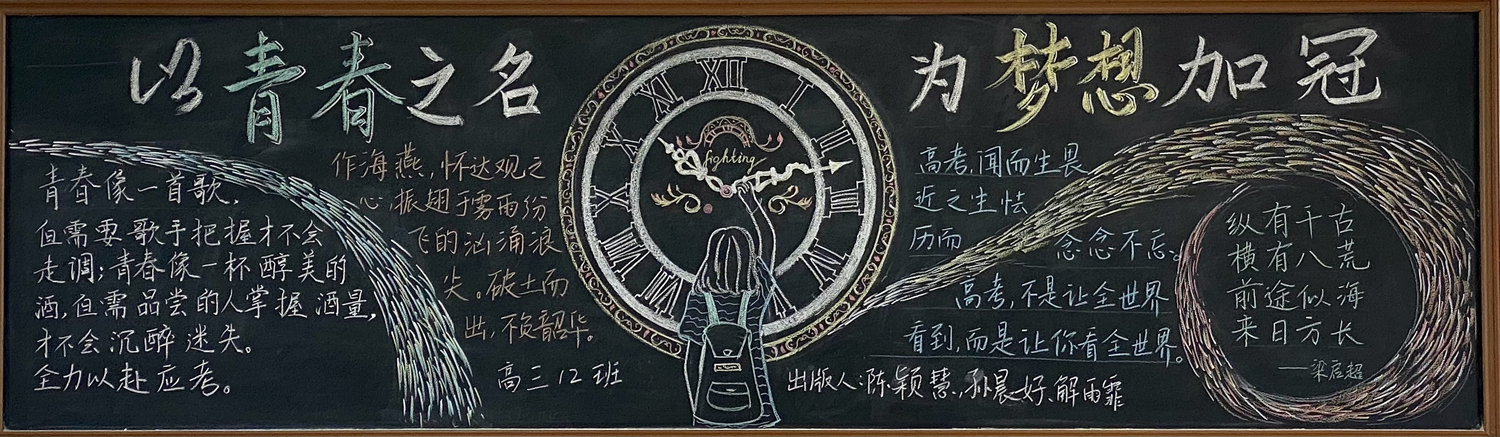 以青春之名
为梦想加冠
青春像一首歌,
但需要歌手把握才不会
走调;青春像一杯醇美的
酒,但需品尝的人掌握酒量,
才不会沉醉迷失。
全力以赴应考。
作海燕,怀达观之
心,振翅于雾雨纷
飞的汹涌浪
尖。破土而
出,不负韶华。
高三12班
XII
I
III
IX
X
XI
fighting
高考,闻而生畏
近之生怯
历而
念念不忘。
高考,不是让全世界
看到,而是让你看全世界。
出版人:陈颖慧,孙晨好、解雨霏
纵有千古
横有八荒
前途似海
来日方长
——梁启超